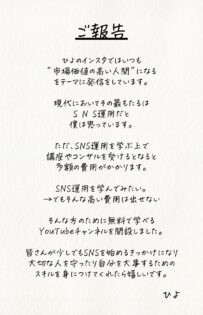 ご報告
ひよのインスタではいつも
“市場価値の高い人間”になる
をテーマに発信をしています。
現代においてその最もたるは
SNS運用だと
僕は思っています。
ただ、SNS運用を学ぶ上で
講座やコンサルを受けるとなると
多額の費用がかかります。
SNS運用を学んでみたい。
→でもそんな高い費用は出せない
そんな方のために無料で学べる
YouTubeチャンネルを開設しました。
皆さんが少しでもSNSを始めるきっかけになり
大切な人を守ったり自分を大事するための
スキルを身につけてくれたら嬉しいです。
ひよ